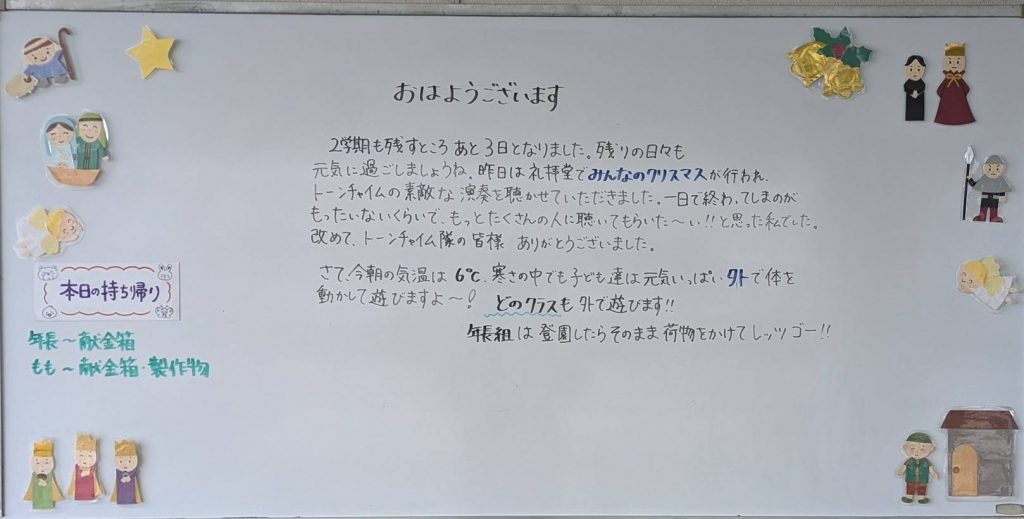 おはようございます
2学期も残すところ あと3日となりました。残りの日々も
元気に過ごしましょうね。昨日は礼拝堂でみんなのクリスマスが行われ、
トーンチャイムの素敵な演奏を聴かせていただきました。一日で終わってしまのが
もったいないくらいで、もっとたくさんの人に聴いてもらいた～い!!と思った私でした。
改めて、トーンチャイム隊の皆様 ありがとうございました。
さて、今朝の気温は 6℃、寒さの中でも子ども達は元気いっぱい外で体を
動かして遊びますよ～! どのクラスも 外で遊びます!!
年長組は登園したらそのまま荷物をかけてレッツゴー!!
本日の持ち帰り
年長～献金箱
もも～献金箱・製作物